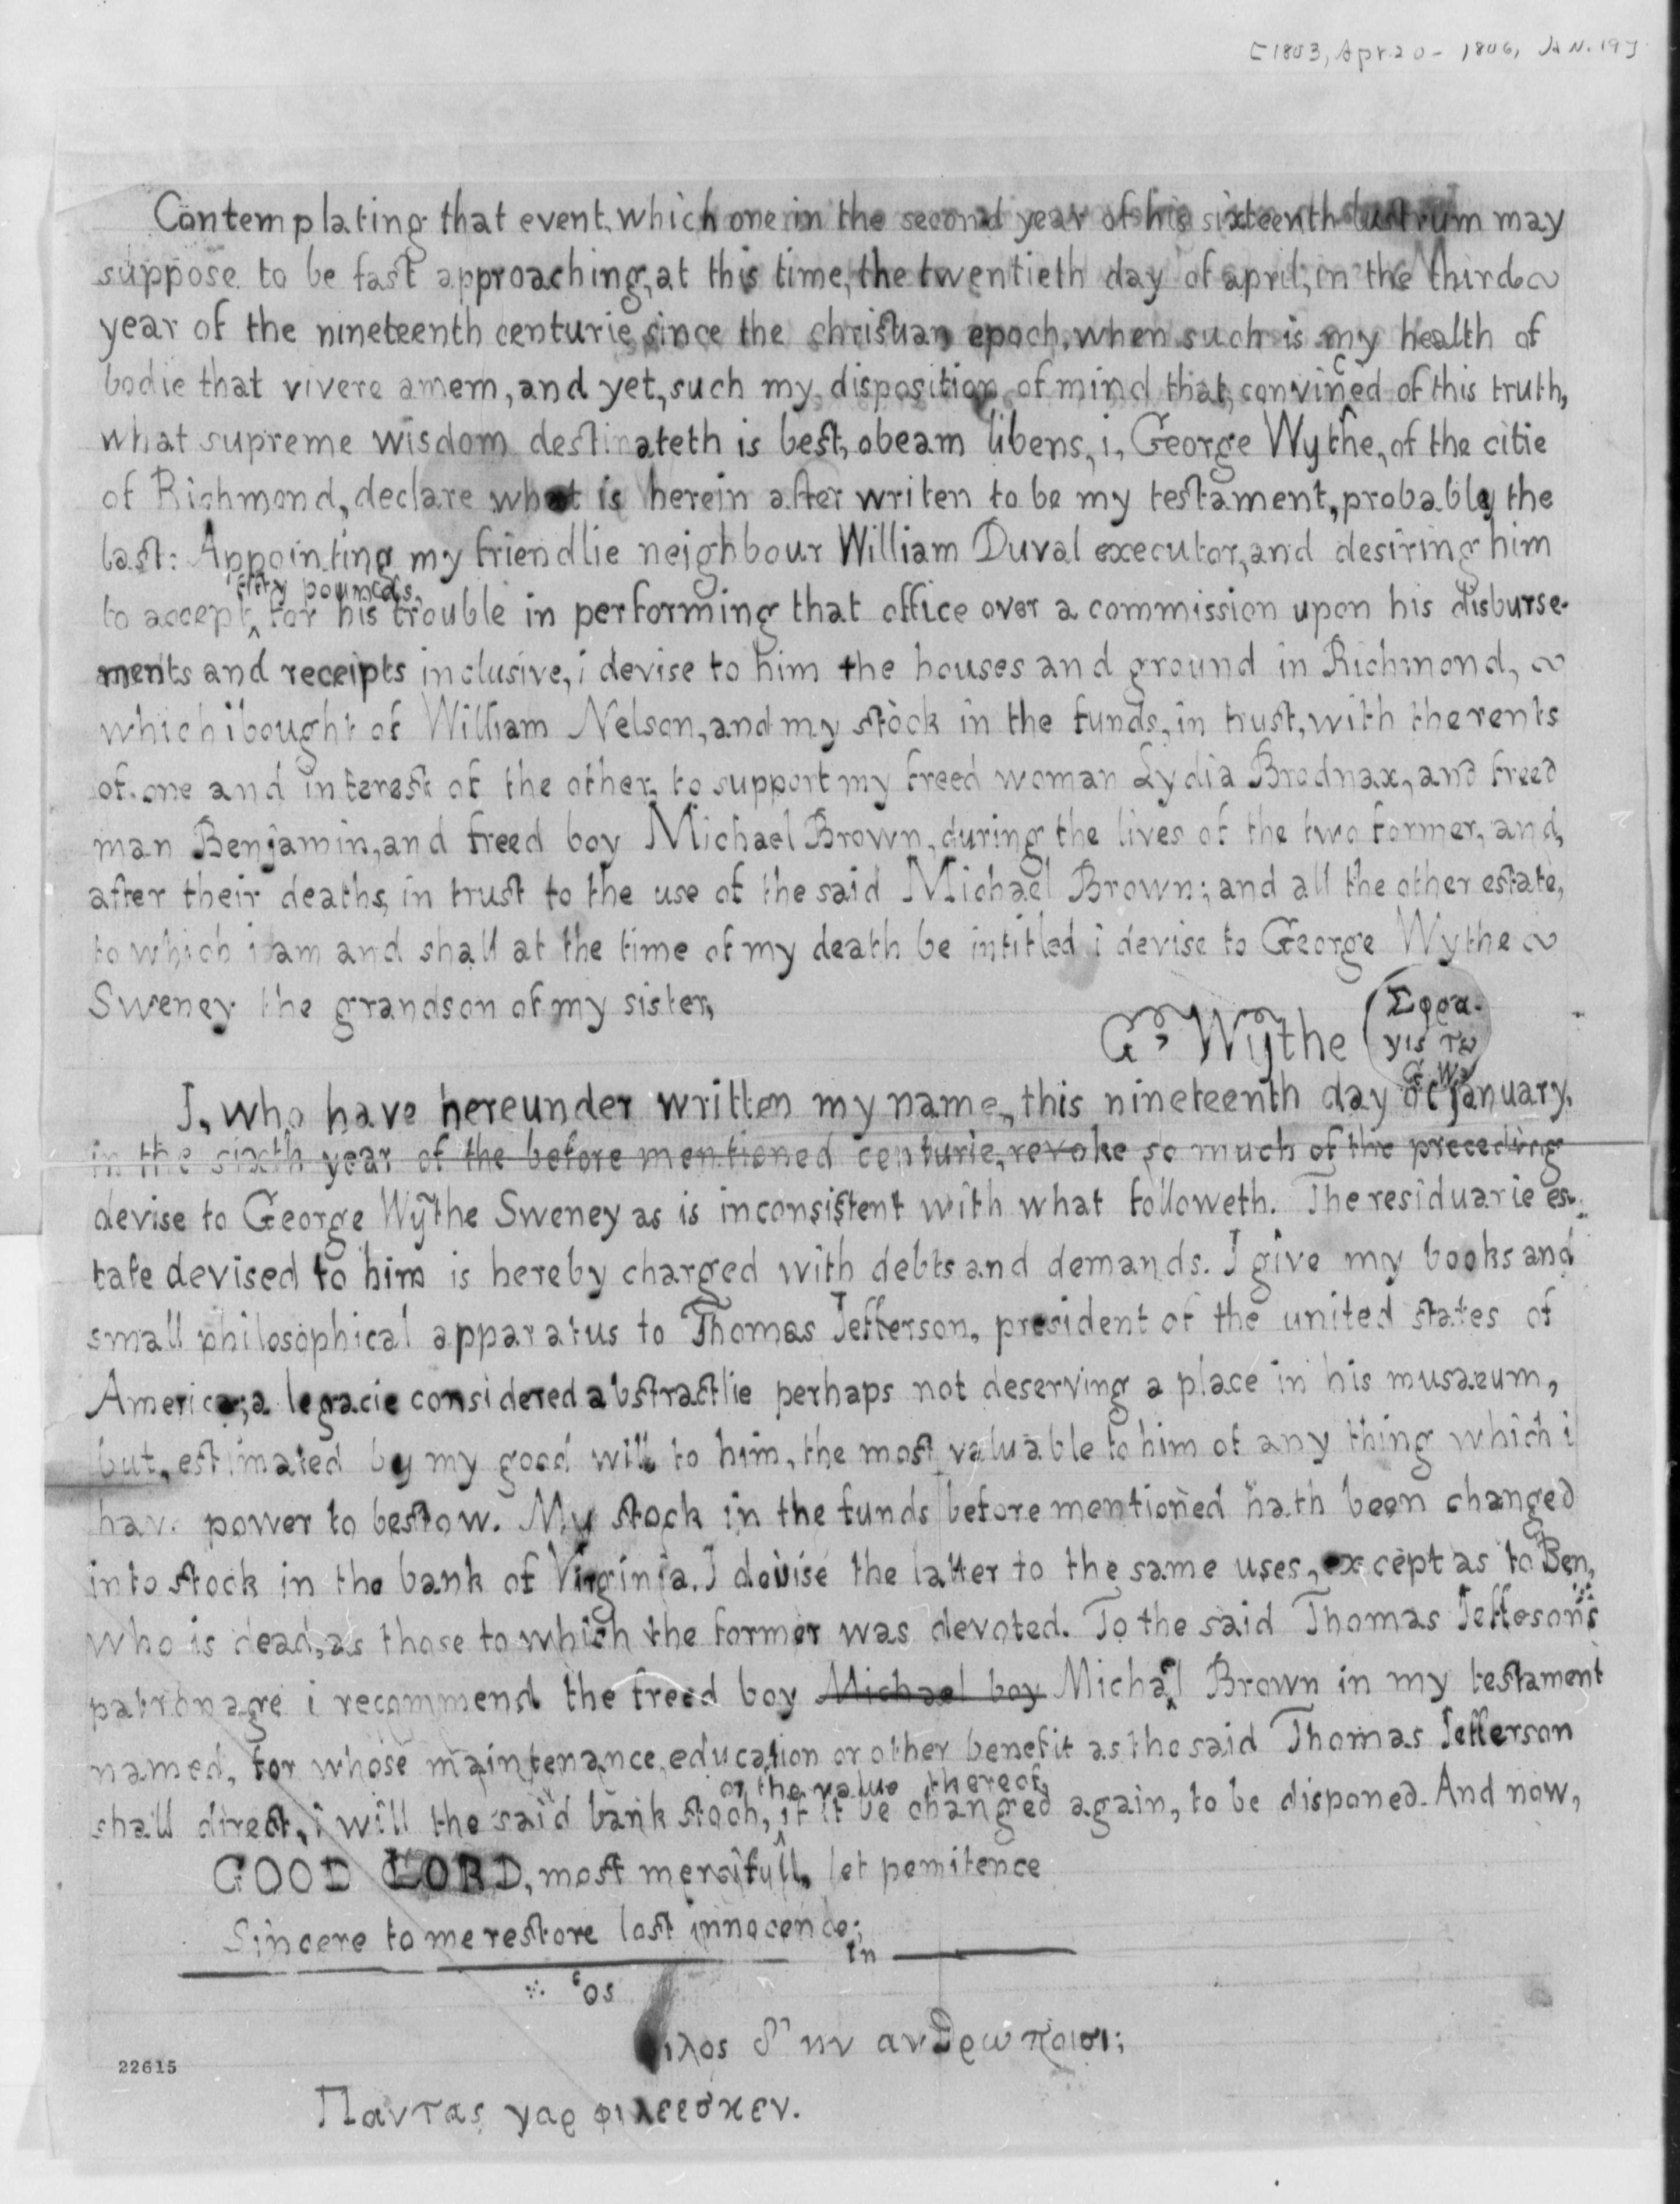 [1803, Apr 20 - 1806, JAN. 19]
Contemplating that event, which one in the second year of his sixteenth lustrum may
suppose to be fast approaching, at this time, the twentieth day of april, in the third
year of the nineteenth centurie since the christian epoch, when such is my health of
bodie that vivere amem, and yet, such my disposition of mind that, convinced of this truth,
what supreme wisdom destinateth is best, obeam libens, i, George Wythe, of the citie
of Richmond, declare what is herein after writen to be my testament, probably the
last: Appointing my friendlie neighbour William Duval executor, and desiring him
fifty pounds,
to accept ^ for his trouble in performing that office over a commission upon his disburse-
ments and receipts inclusive, i devise to him the houses and ground in Richmond,
which i bought of William Nelson, and my stock in the funds, in trust, with the rents
of one and interest of the other, to support my freed woman Lydia Brodnax, and freed
man Benjamin, and freed boy Michael Brown, during the lives of the two former, and,
after their deaths, in trust to the use of the said Michael Brown; and all the other estate,
to which i am and shall at the time of my death be intitled i devise to George Wythe
Sweney the grandson of my sister,
G Wythe
Σφρα-
γις τȣ
G W
I, who have hereunder written my name, this nineteenth day of january,
in the sixth year of the before mentioned centurie, revoke so much of the preceding
devise to George Wythe Sweney as is inconsistent with what followeth. The residuarie es-
tate devised to him is hereby charged with debts and demands. I give my books and
small philosophical apparatus to Thomas Jefferson, president of the united states of
America; a legacie considered abstractlie perhaps not deserving a place in his musaeum,
but, estimated by my good will to him, the most valuable to him of any thing which i
hav power to bestow. My stock in the funds before mentioned hath been changed
into stock in the bank of Virginia. I devise the latter to the same uses, except as to Ben,
who is dead, as those to which the former was devoted. To the said Thomas Jeffeson's
patronage i recommend the freed boy Michael boy Michael Brown in my testament
named, for whose maintenance, education or other benefit as the said Thomas Jefferson
or the value thereof,
shall direct, i will the said bank stoch, ^ if it be changed again, to be disponed. And now,
GOOD LORD, most mercifull, let penitence
Sincere to me restore lost innocence;
In
ʽος
Φιλος δ' ην ανθρωποισι;
Παντας γαρ φιλεεσκεν.
22615